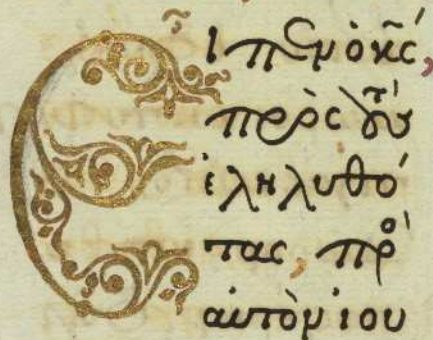 Εἶπεν ὁ κ̅ς,
πρὸς τοὺς
ἐληλυθό
τας, πρὸ
αὐτὸν ιου